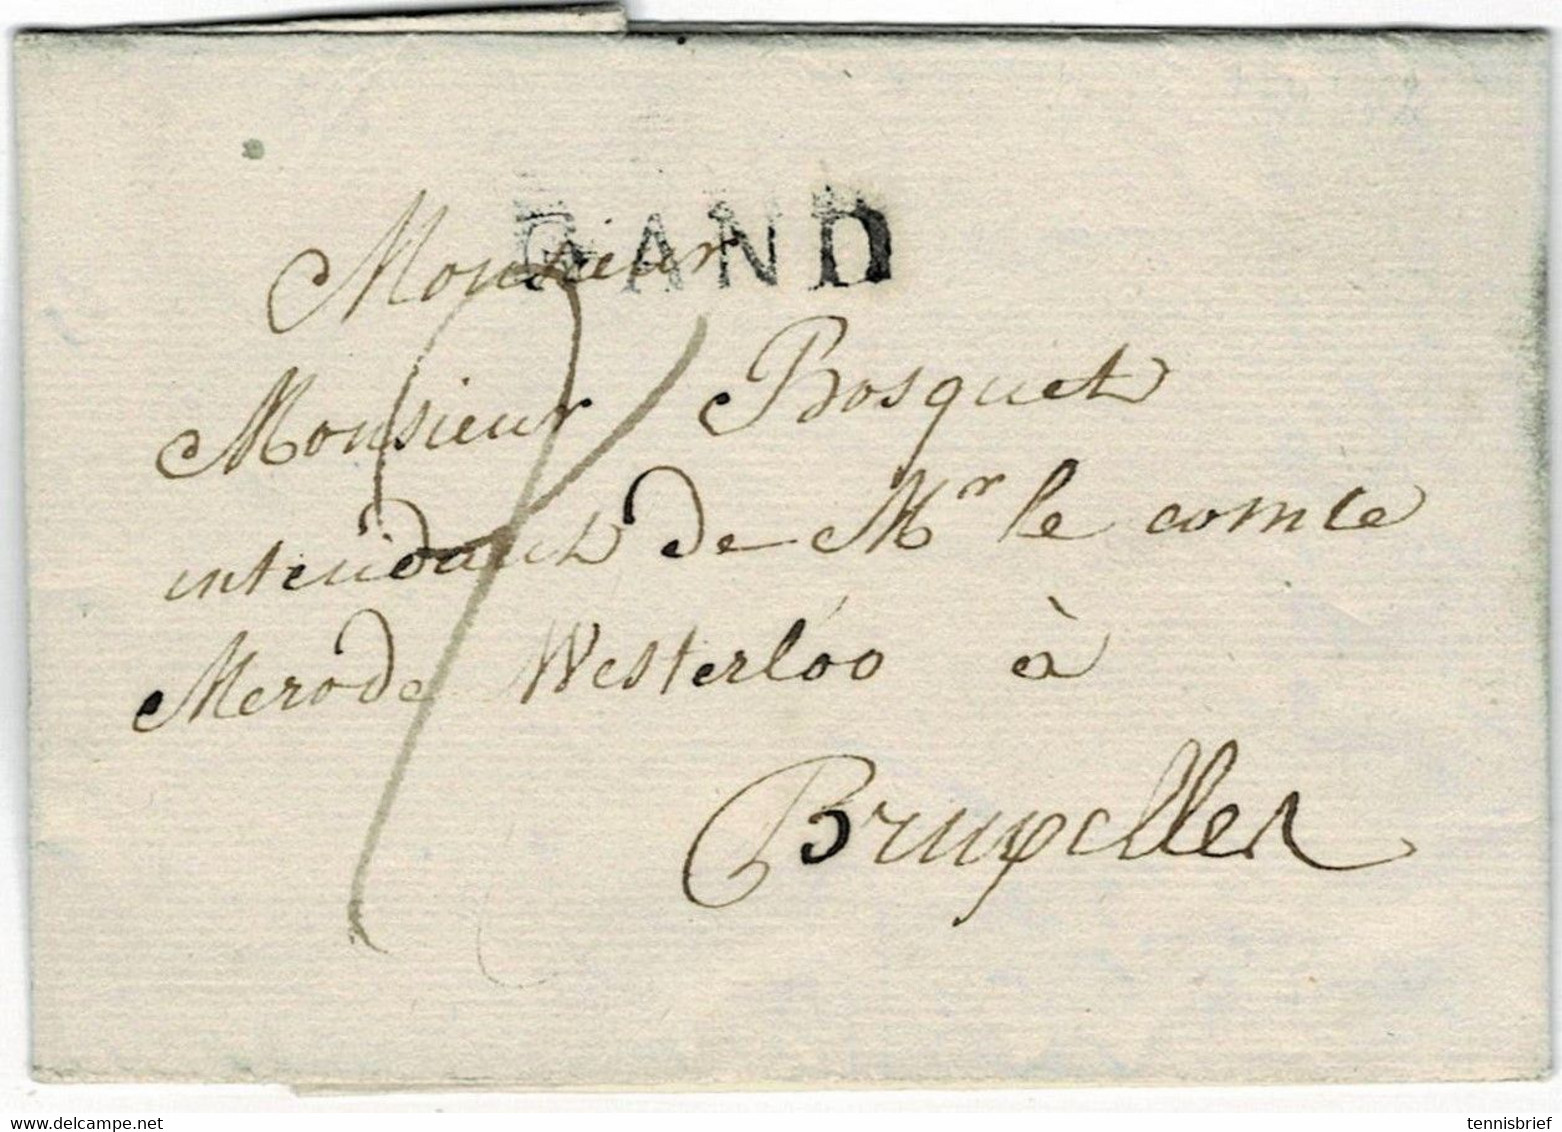 GAND
Monsieur
Monsieur Bosquet
intendant de Mr le comte
Merode Westerloo à
Bruxelles
delcampe.net
tennisbrief